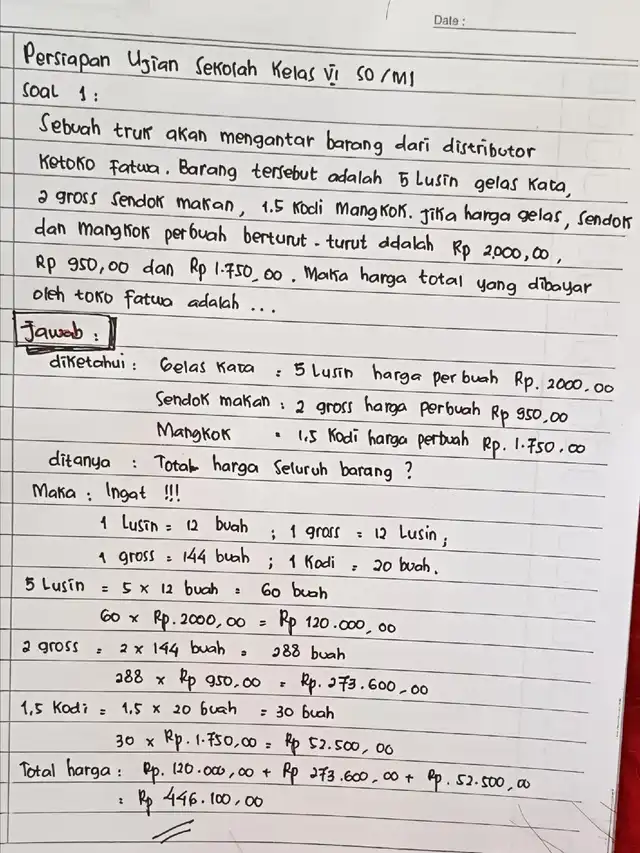 Date :
Persiapan Ujian Sekolah Kelas VI SD/MI
Soal 1 :
Sebuah truk akan mengantar barang dari distributor
Ketoko Fatwa. Barang tersebut adalah 5 Lusin gelas Kaca,
2 gross Sendok makan, 1.5 Kodi Mangkok. Jika harga gelas, Sendok
dan Mangkok perbuah berturut - turut adalah Rp 2.000,00,
Rp 950,00 dan Rp 1.750,00. Maka harga total yang dibayar
oleh toko Fatwa adalah ...
Jawab :
diketahui : Gelas Kaca : 5 Lusin harga per buah Rp. 2000.00
Sendok makan : 2 gross harga perbuah Rp 950,00
Mangkok : 1,5 Kodi harga perbuah Rp. 1.750.00
ditanya : Total harga Seluruh barang ?
Maka : Ingat !!!
1 Lusin = 12 buah ; 1 gross = 12 Lusin ;
1 gross = 144 buah ; 1 Kodi = 20 buah.
5 Lusin = 5 x 12 buah = 60 buah
60 x Rp. 2000,00 = Rp 120.000,00
2 gross = 2 x 144 buah = 288 buah
288 x Rp 950.00 = Rp. 273.600,00
1,5 Kodi = 1,5 x 20 buah = 30 buah
30 x Rp. 1.750,00 = Rp 52.500,00
Total harga : Rp. 120.000,00 + Rp 273.600,00 + Rp. 52.500,00
: Rp 446.100,00